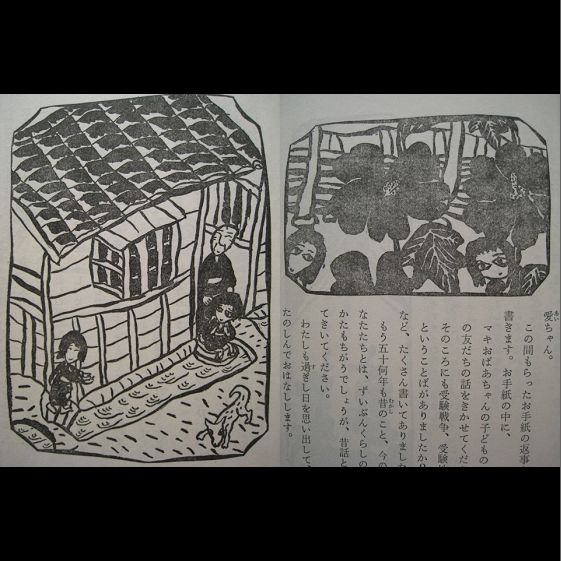 愛ちゃん。
この間もらったお手紙の返事
書きます。お手紙の中に、
マキおばあちゃんの子どもの
の友だちの話をきかせてくだ
そのころにも受験戦争、受験
ということばがありましたか
など、たくさん書いてありました
もう五十何年も昔のこと、今の
なたたちとは、ずいぶんくらしの
かたもちがうでしょうが、昔話と
てきいてください。
わたしも過ぎし日を思い出して、
たのしんでおはなしします。